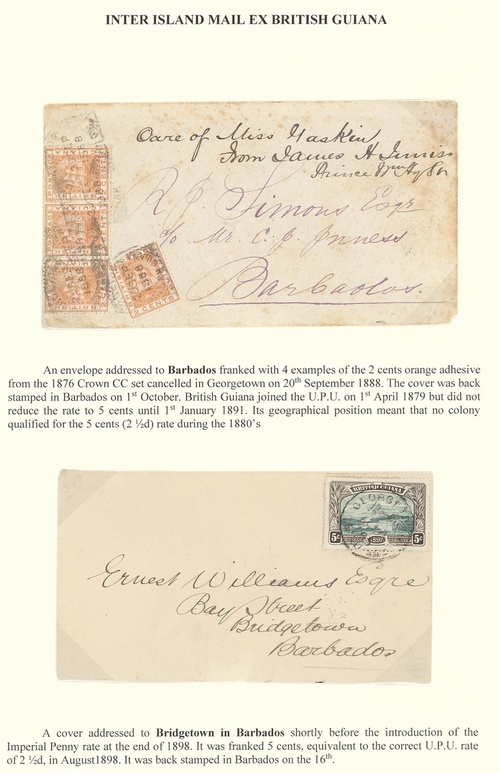 INTER ISLAND MAIL EX BRITISH GUIANA
Care of Miss Gaskin
from James H Inniss
Prince Wm Hy St
R. J. Simons Esqr
c/o Mr. C. J. Inness
Barbados.
2 CENTS
An envelope addressed to Barbados franked with 4 examples of the 2 cents orange adhesive
from the 1876 Crown CC set cancelled in Georgetown on 20th September 1888. The cover was back
stamped in Barbados on 1st October. British Guiana joined the U.P.U. on 1st April 1879 but did not
reduce the rate to 5 cents until 1st January 1891. Its geographical position meant that no colony
qualified for the 5 cents (2 ½d) rate during the 1880's
BRITISH GUIANA
5c 5c
Ernest Williams Esqre
Bay Street
Bridgetown
Barbados
A cover addressed to Bridgetown in Barbados shortly before the introduction of the
Imperial Penny rate at the end of 1898. It was franked 5 cents, equivalent to the correct U.P.U. rate
of 2 ½d, in August1898. It was back stamped in Barbados on the 16th.